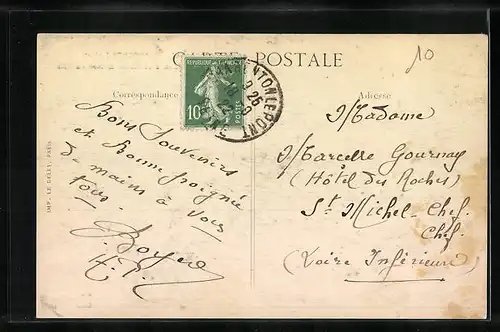 CARTE POSTALE
10
Correspondance
Adresse
REPUBLIQUE FRANÇAISE
10c
POSTES
CHARENTON LE PONT
Bons Souvenirs
et Bonne poignée
de mains à vous
tous.
IMP. LE DELEY, PARIS
Madame
Marcelle Gournay
(Hôtel des Roches)
St Michel-Chef-
Chef.
(Loire Inférieure)